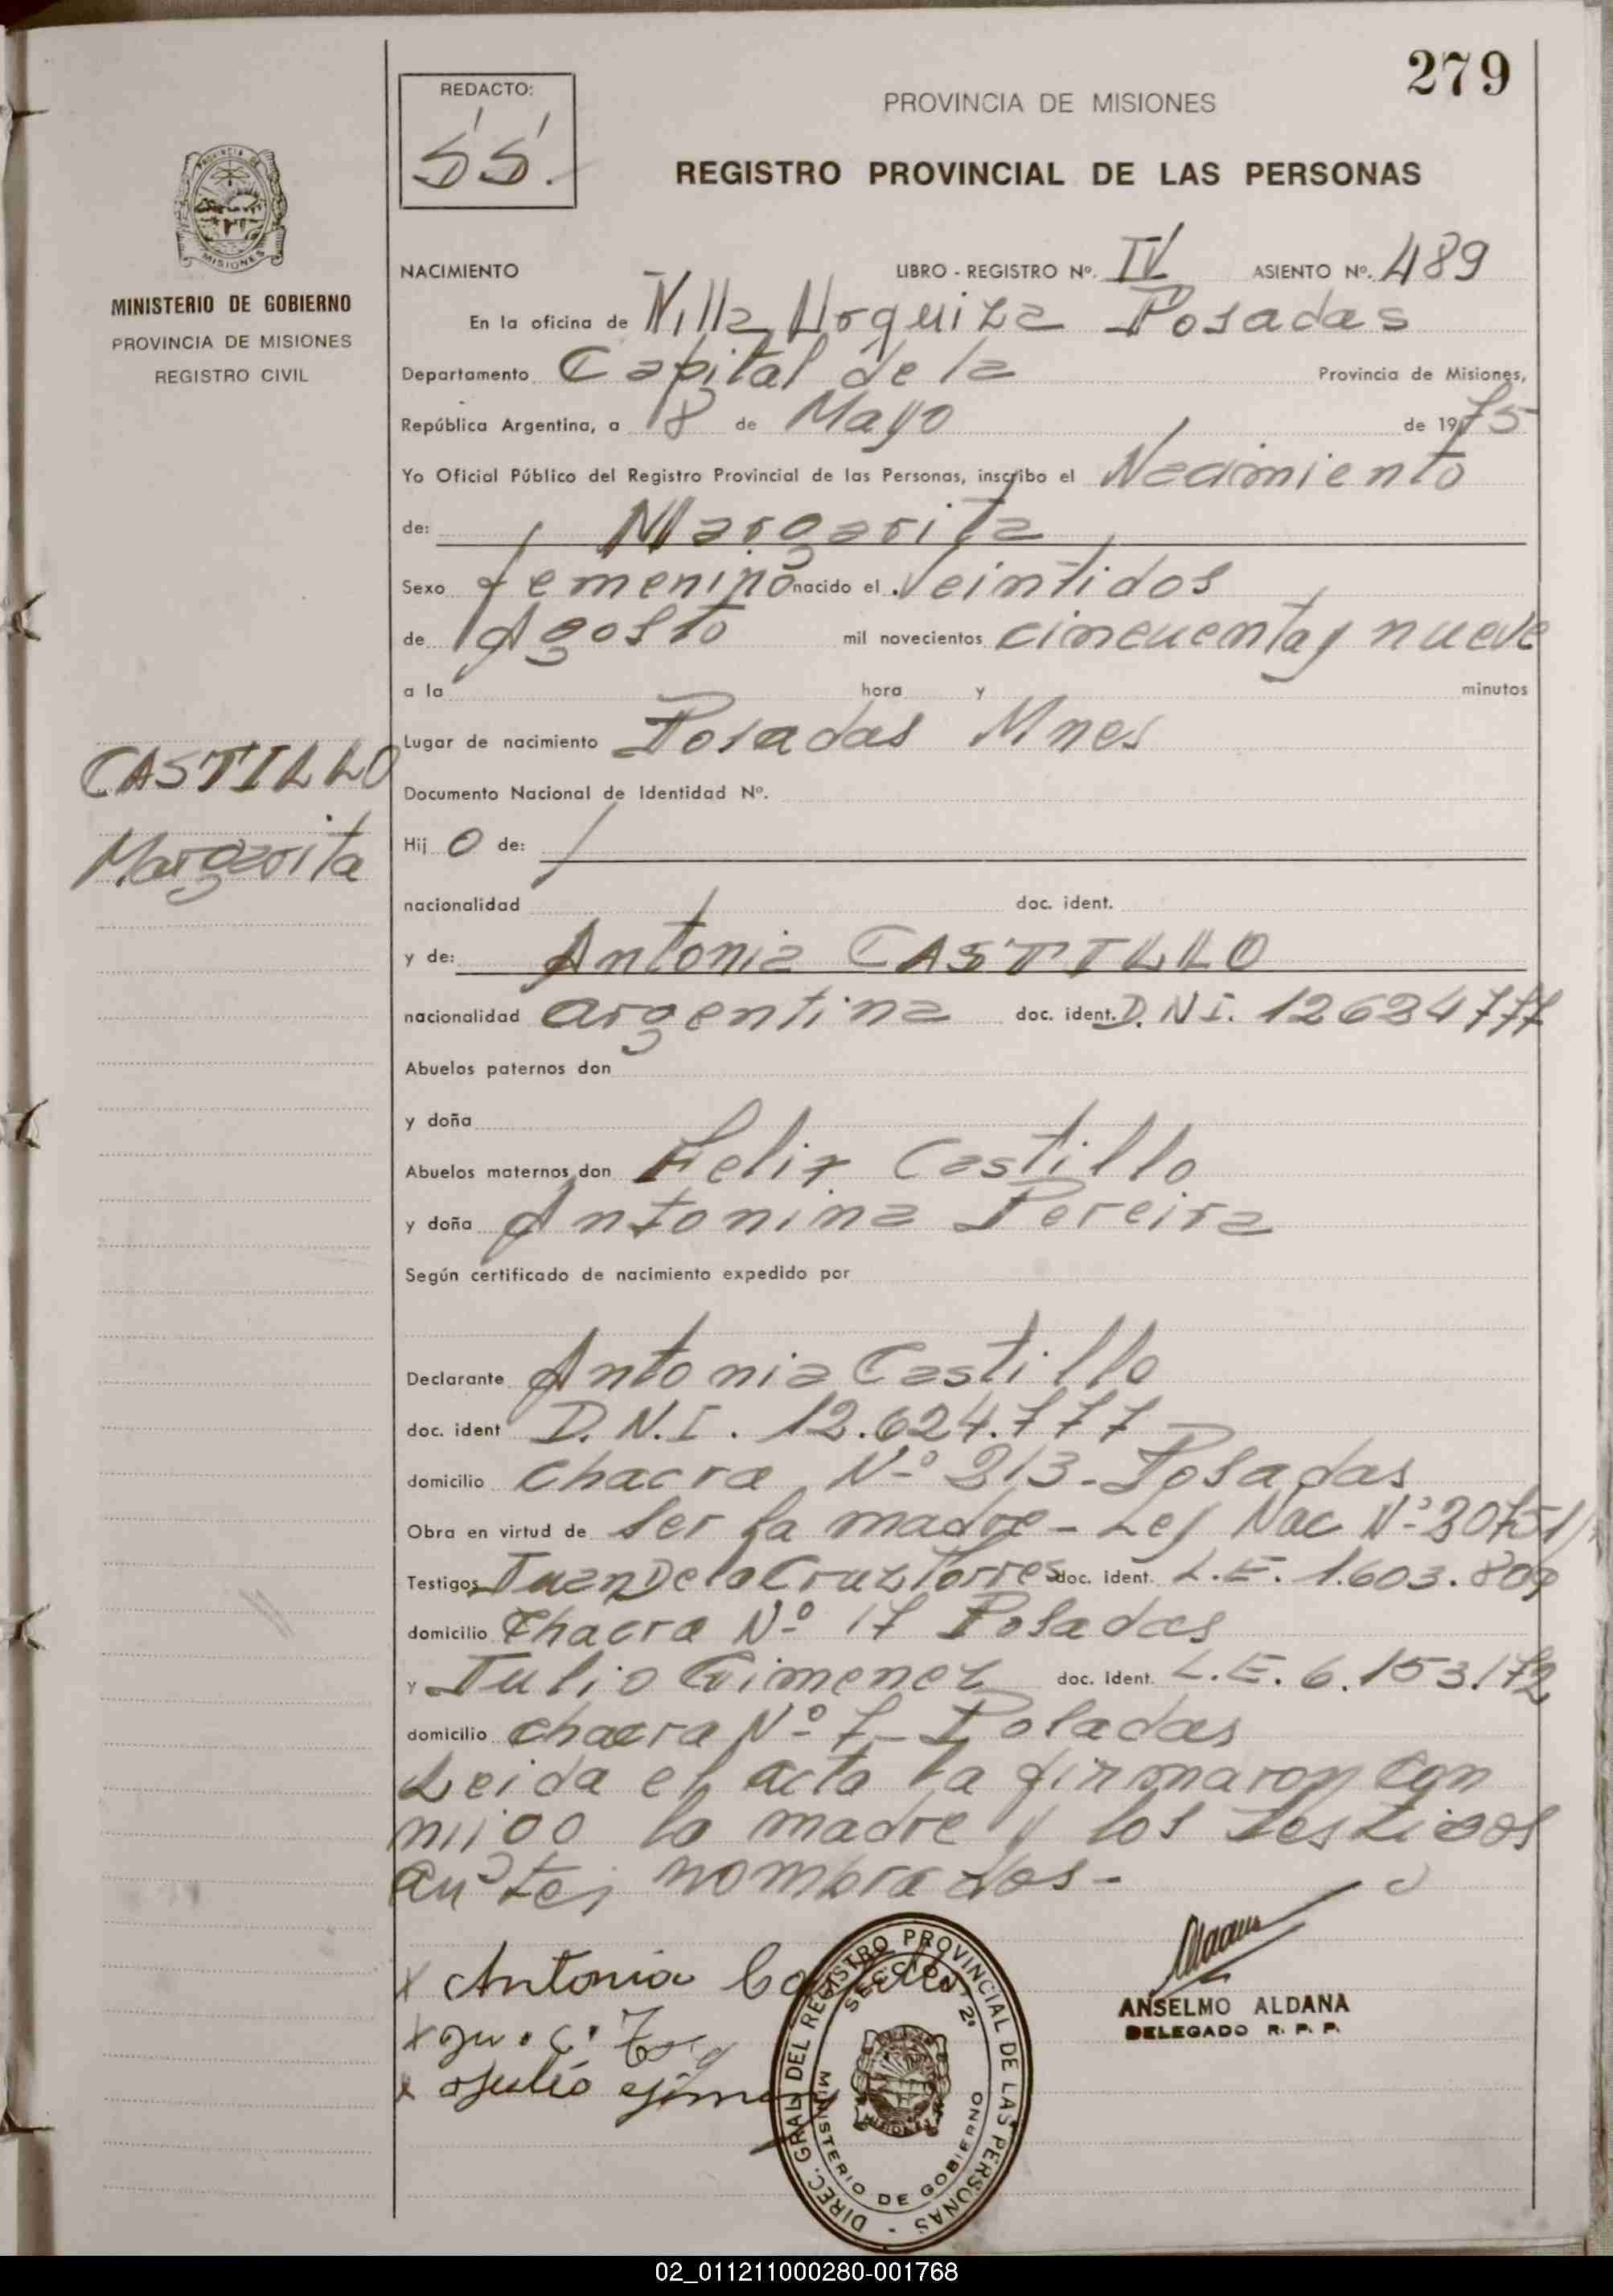 279
REDACTO:
SS.
PROVINCIA DE MISIONES
REGISTRO PROVINCIAL DE LAS PERSONAS
MISIONES
MINISTERIO DE GOBIERNO
PROVINCIA DE MISIONES
REGISTRO CIVIL
NACIMIENTO LIBRO - REGISTRO Nº. IV ASIENTO Nº. 489
En la oficina de Villa Urquiza Posadas
Departamento Capital de la Provincia de Misiones,
República Argentina, a 18 de Mayo de 1975
Yo Oficial Público del Registro Provincial de las Personas, inscribo el Nacimiento
de: Margarita
Sexo femenino nacido el Veintidos
de Agosto mil novecientos cincuenta y nueve
a la hora y minutos
Lugar de nacimiento Posadas Mnes
CASTILLO
Margarita
Documento Nacional de Identidad Nº.
Hij o de:
nacionalidad doc. ident.
y de: Antonia CASTILLO
nacionalidad argentina doc. ident. D.N.I. 12624777
Abuelos paternos don
y doña
Abuelos maternos don Felix Castillo
y doña Antonina Pereira
Según certificado de nacimiento expedido por
Declarante Antonia Castillo
doc. ident D.N.I. 12.624.777
domicilio chacra Nº 213 - Posadas
Obra en virtud de ser la madre - Ley Nac Nº 20751
Testigos Juan De la Cruz Torres doc. ident. L.E. 1.603.809
domicilio Chacra Nº 17 Posadas
y Julio Gimenez doc. ident. L.E. 6.153.172
domicilio chacra Nº 7 - Posadas
Leida el acta la firmaron con
migo la madre y los testigos
antes nombrados -
x Antonia Castillo
x Julio
ANSELMO ALDANA
DELEGADO R. P. P.
DIREC. GRAL. DEL REGISTRO PROVINCIAL DE LAS PERSONAS -
SECCION 2ª
MINISTERIO DE GOBIERNO
MISIONES
02_011211000280-001768